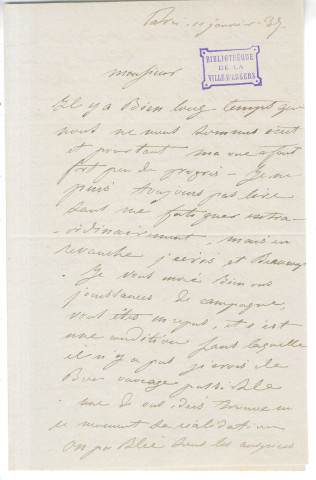 Paris - 11 janvier - 39
BIBLIOTHÈQUE
DE LA
VILLE D'ANGERS
monsieur
Il y a Bien long tempt que
nous ne nous sommes écrit
et pourtant ma vue a fait
fort peu de progrès - Je ne
puis toujours pas lire
sans me fatiguer extra-
ordinairement, mais en
revanche j'écris et Beaucoup
. Je vous envie Bien vos
jouissances de campagne,
vous êtes en repos, et c'est
une condition sans laquelle
il n'y a pas je crois de
Bon ouvrage possible
une de vos idées trouve en
ce moment sa réalisation
on publie sous les auspices